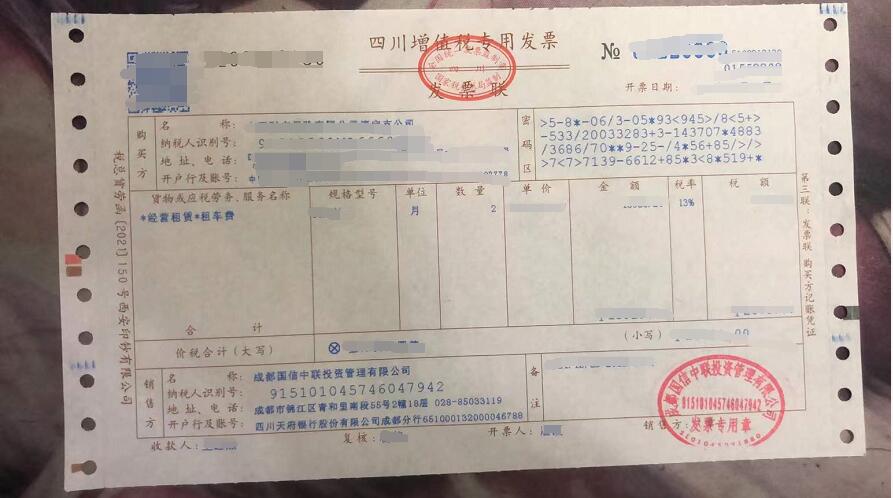 四川增值税专用发票
发票联
№
开票日期:
购买方
名称:
纳税人识别号:
地址、电话:
开户行及账号:
密码区
>5-8*-06/3-05*93<945>/8<5+>
-533/20033283+3-143707*4883
/3686/70**9-25-/4*56+85/>/>
>7<7>7139-6612+85*3<8*519+*
货物或应税劳务、服务名称 规格型号 单位 数量 单价 金额 税率 税额
*经营租赁*租车费 月 2 13%
合计
价税合计(大写) ⊗ (小写)
销售方
名称: 成都国信中联投资管理有限公司
纳税人识别号: 915101045746047942
地址、电话: 成都市锦江区青和里南段55号2幢18层 028-85033119
开户行及账号: 四川天府银行股份有限公司成都分行651000132000046788
备注
收款人: 复核: 开票人: 销售方:
成都国信中联投资管理有限公司
915101045746047942
发票专用章
税总货劳函[2021]150号西安印钞有限公司
第三联:发票联 购买方记账凭证